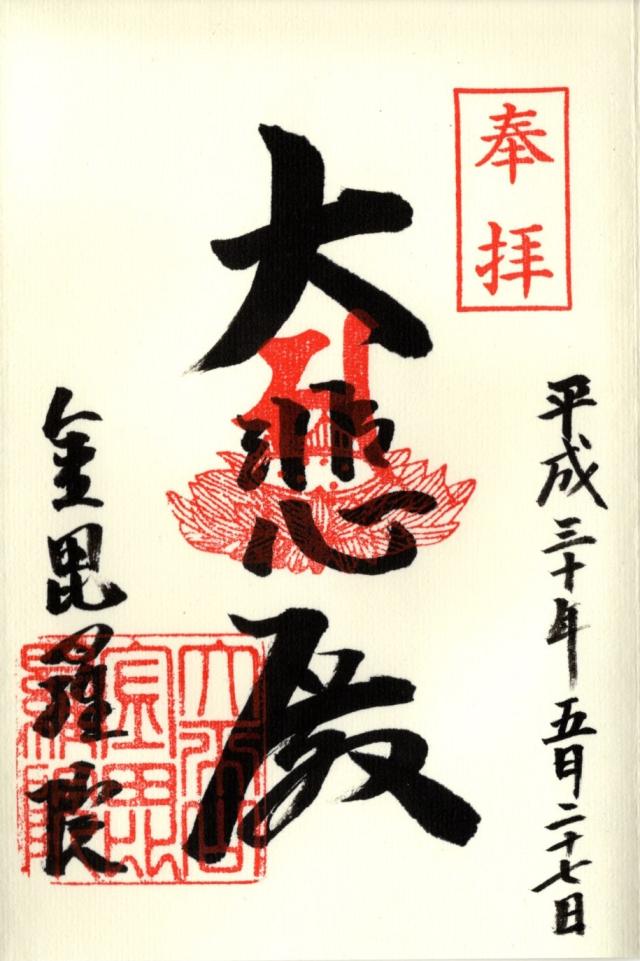 奉拝
平成三十年五月二十七日
大悲殿
金毘羅院